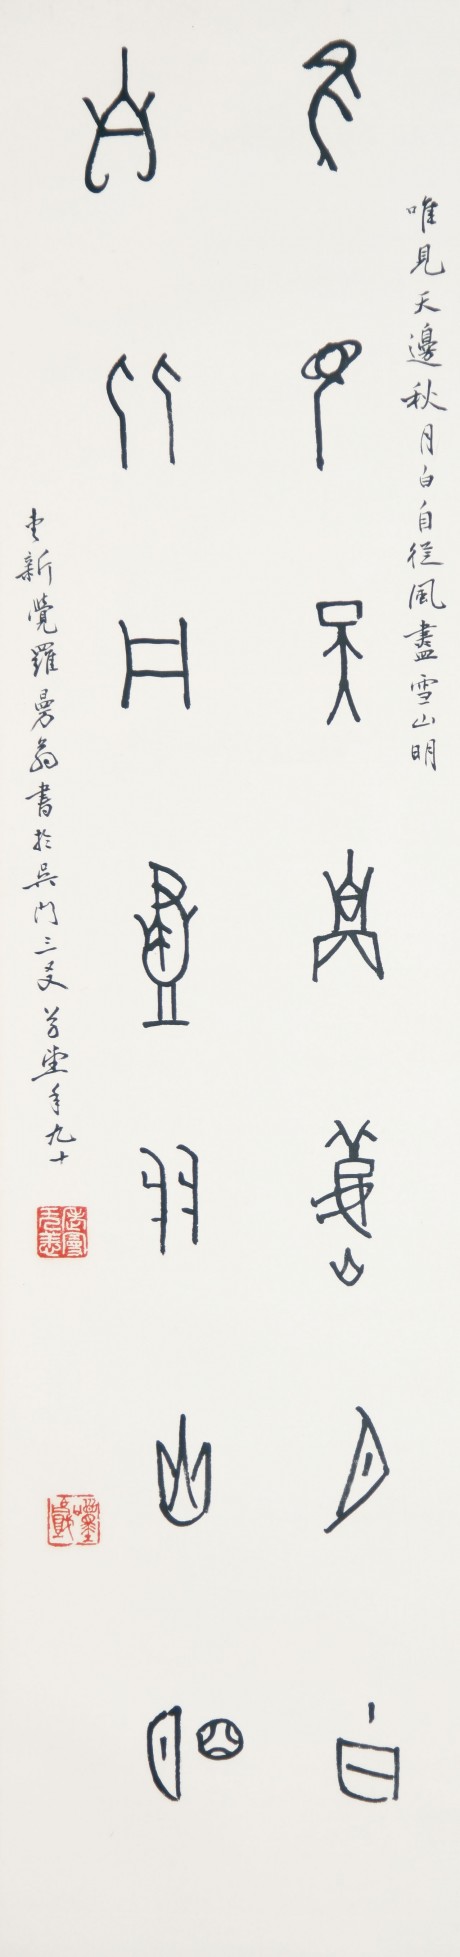 唯見天邊秋月白自從風盡雪山明
隹見天邊秋月白
自從凡盡雪山明
愛新覺羅曼翁書於吳門三友草堂年九十